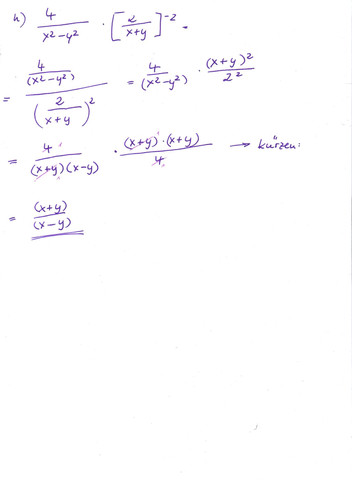 h) 4/(x²-y²) · [2/(x+y)]⁻² =
= (4/(x²-y²))/(2/(x+y))² = 4/(x²-y²) · (x+y)²/2²
= 4/((x+y)(x-y)) · ((x+y)·(x+y))/4 → kürzen:
= (x+y)/(x-y)